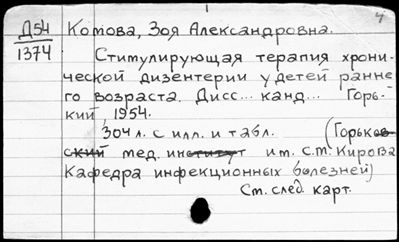 4
Д54 Котова, Зоя Александровна.
1374 Стимулирующая терапия хрони-
ческой дизентерии у детей ранне-
го возраста. Дисс... канд... Горь-
кий, 1954.
304 л. с илл. и табл. (Горьков-
ский мед. институт им. С.М. Кирова
Кафедра инфекционных болезней)
См. след карт.